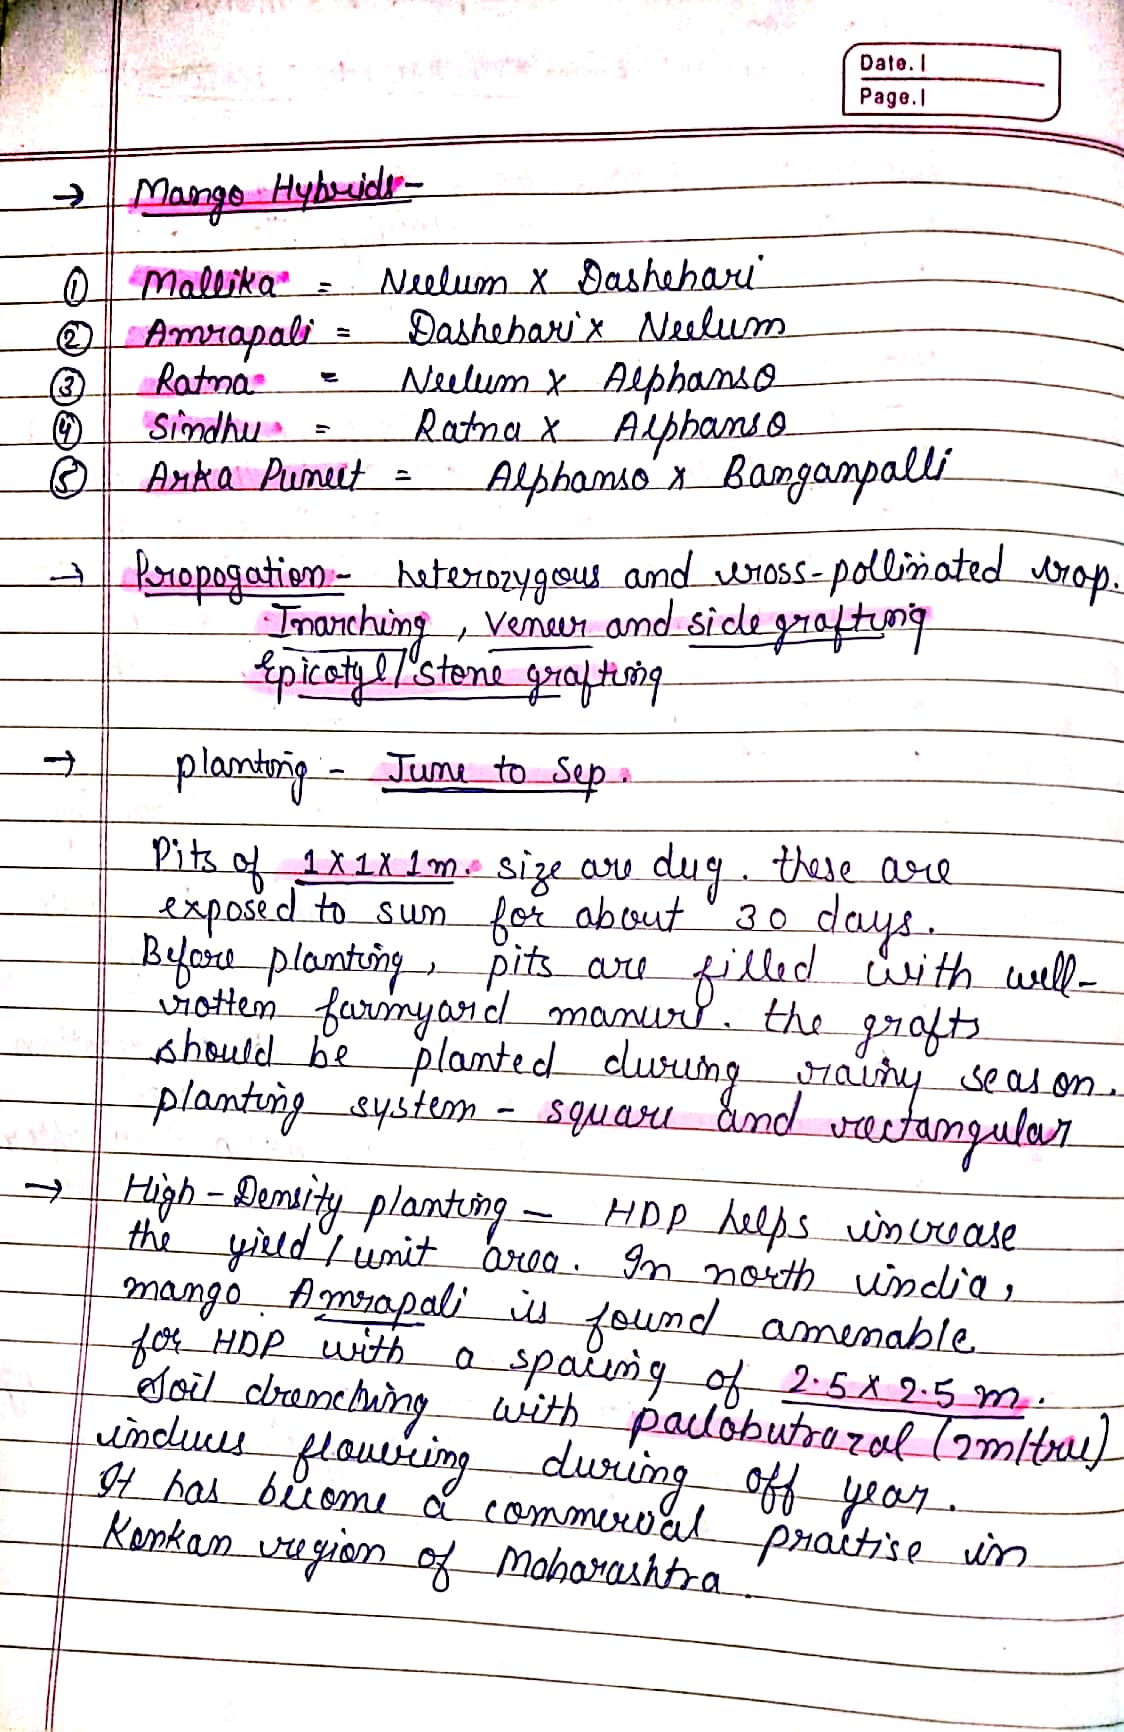 Date.
Page.
→ Mango Hybrids -
① Mallika = Neelum x Dashehari
② Amrapali = Dashehari x Neelum
③ Ratna = Neelum x Alphanso
④ Sindhu = Ratna x Alphanso
⑤ Arka Puneet = Alphanso x Banganpalli
→ Propogation - heterozygous and cross-pollinated crop.
Inarching, veneer and side grafting
Epicotyl/stone grafting
→ planting - June to Sep.
Pits of 1x1x1m. size are dug. these are
exposed to sun for about 30 days.
Before planting, pits are filled with well-
rotten farmyard manure. the grafts
should be planted during rainy season.
planting system - square and rectangular
→ High-Density planting - HDP helps increase
the yield/unit area. In north india,
mango Amrapali is found amenable
for HDP with a spacing of 2.5x2.5 m.
Soil drenching with paclobutrazal (2m/tree)
induces flowering during off year.
It has become a commercial practise in
Konkan region of Maharashtra